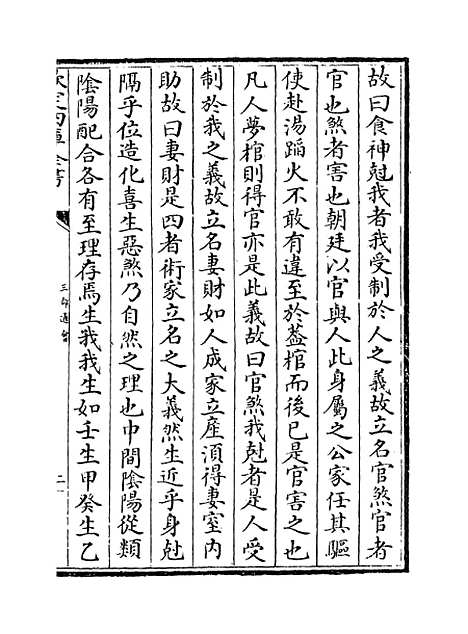 故曰食神尅我者我受制於人之義故立名官煞官者
官也煞者害也朝廷以官與人此身屬之公家任其驅
使赴湯蹈火不敢有違至於葢棺而後已是官害之也
凡人夢棺則得官亦是此義故曰官煞我尅者是人受
制於我之義故立名妻財如人成家立産須得妻室内
助故曰妻財是四者術家立名之大義然生近乎身尅
隔乎位造化喜生惡煞乃自然之理也中間陰陽從類
陰陽配合各有至理存焉生我我生如壬生甲癸生乙
欽定四庫全書
三命通會